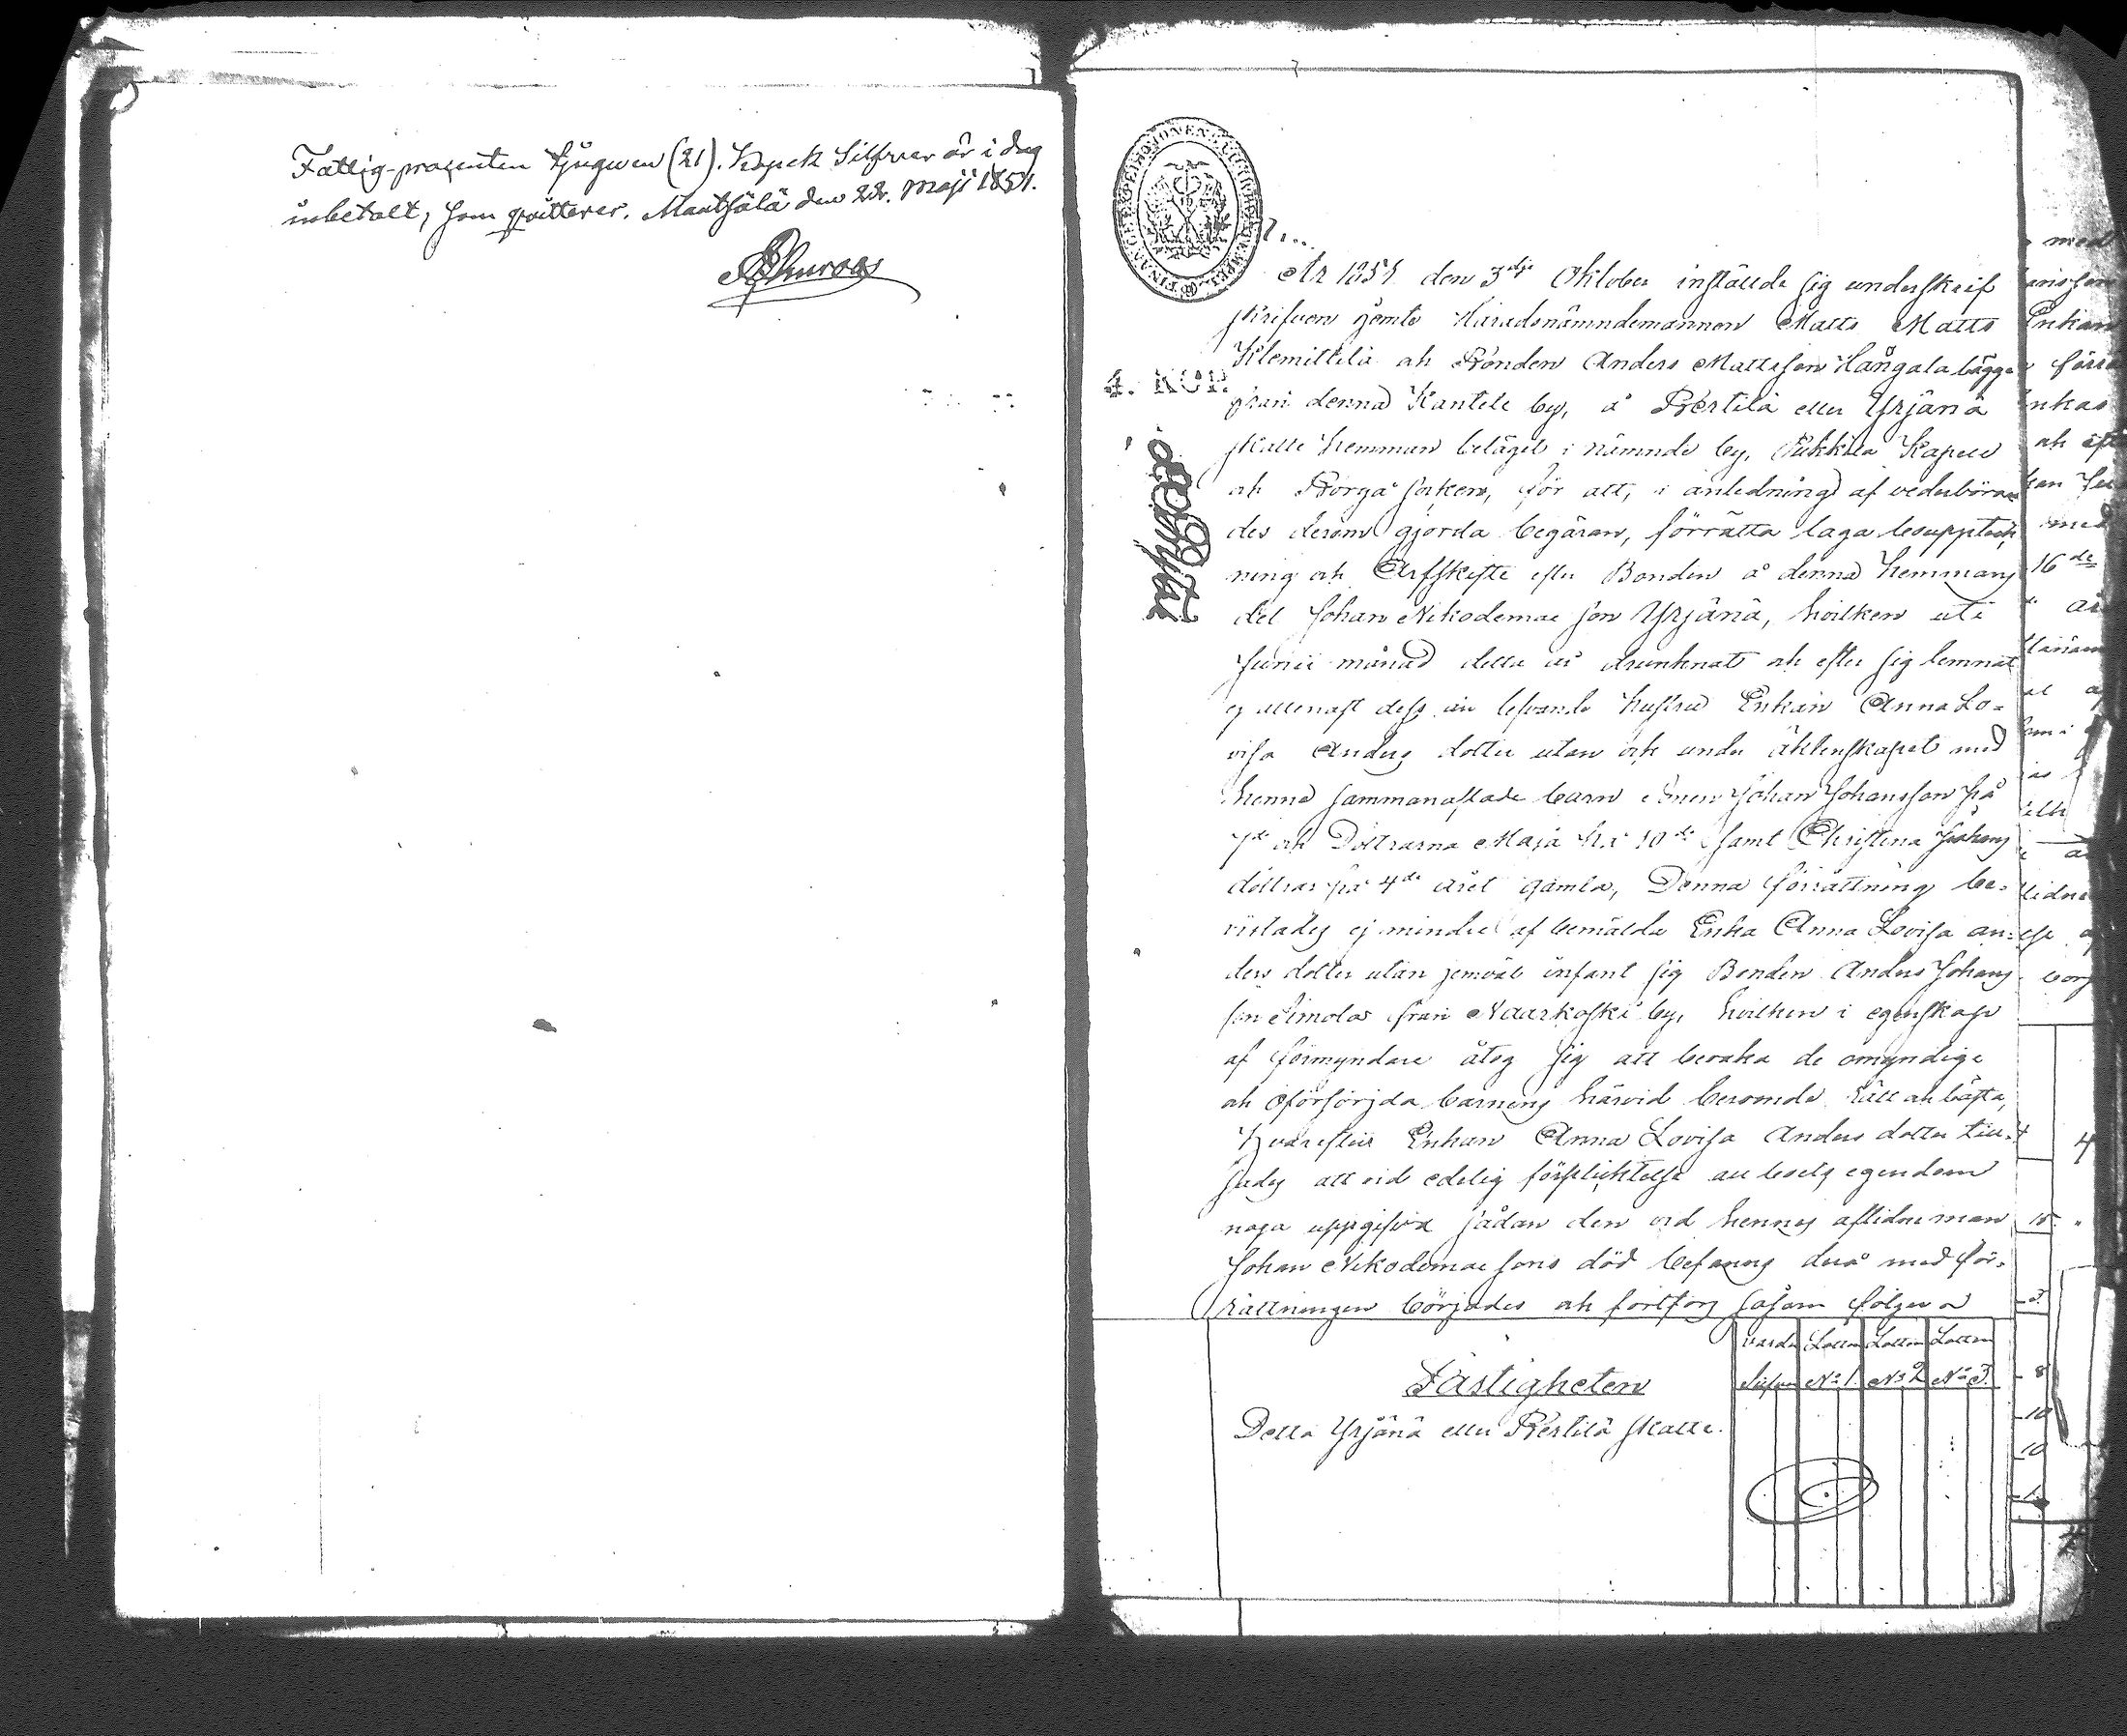 Fattig-procenten tjuguen (21). Kopek Silfver är i dag
inbetalt, som qvitterer. Mäntsälä den 22. Maji 1851.
År 1851 den 3dje Oktober instälde sig underskrif
skrifven jemte Häradsnämndemannen Matts Matts
Klemittilä och Bonden Anders Mattsson Hangala bägge
4. KOP.
från denna Kantele by, å Pertilä eller Yrjänä
skatte hemman belägit i nämnde by, Pukkila Kapell
och Borgå socken, för att, i anledning af vederböran
des derom gjorda begäran, förrätta laga bouppteck
ning och Arfskifte efter Bonden å denna hemmans
del Johan Nikodemae son Yrjänä, hvilken uti
Junii månad detta år drunknat och efter sig lemnat
ej allenast dess än lefvande hustru Enkan Anna Lo-
visa Anders dotter utan och under äktenskapet med
henne sammanaflade barn Sonen Johan Johansson på
7de och Döttrarna Maja på 10de samt Christina Johans
döttrar på 4de året gamla, Denna förrättning be-
vistades ej mindre af bemälda Enka Anna Lovisa An-
ders dotter utan jemväl infant sig Bonden Anders Johans
son Simola från Naarkoski by, hvilken i egenskap
af förmyndare åtog sig att bevaka de omyndige
och oförsörjda barnens härvid beroende rätt och bästa,
Hvarefter Enkan Anna Lovisa Anders dotter till-
sades att vid edelig förpliktelse all boets egendom
noga uppgifva sådan den vid hennes aflidne man
Johan Nikodemae sons död befanns derå med för-
rättningen börjades och fortfors såsom följer
Värde Lotten Lotten Lotten
Fastigheten
Silfver No 1. No 2 No 3.
Detta Yrjänä eller Pertilä skatte.